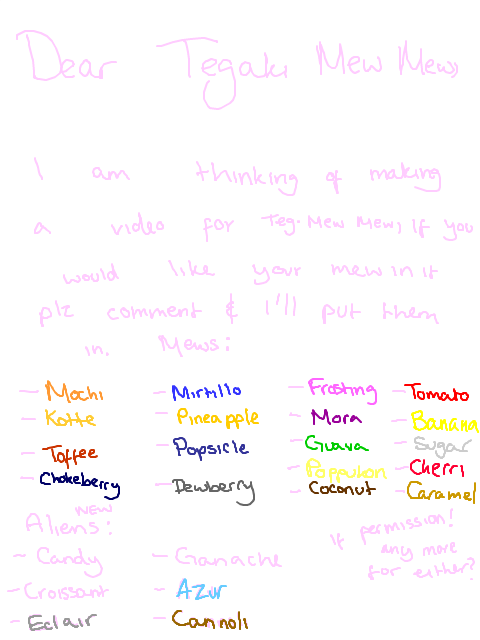 Dear Tegaki Mew Mews,
I am thinking of making
a video for Teg. Mew Mews, If you
would like your mew in it
plz comment & I'll put them
in. Mews:
- Mochi - Mirtillo - Frosting - Tomato
- Kotte - Pineapple - Mora - Banana
- Toffee - Popsicle - Guava - Sugar
- Chokeberry - Dewberry - Poppukon - Cherri
- Coconut - Caramel
NEW
Aliens:
~ Candy - Ganache
- Croissant - Azur
- Eclair - Cannoli
If permission!
any more
for either?